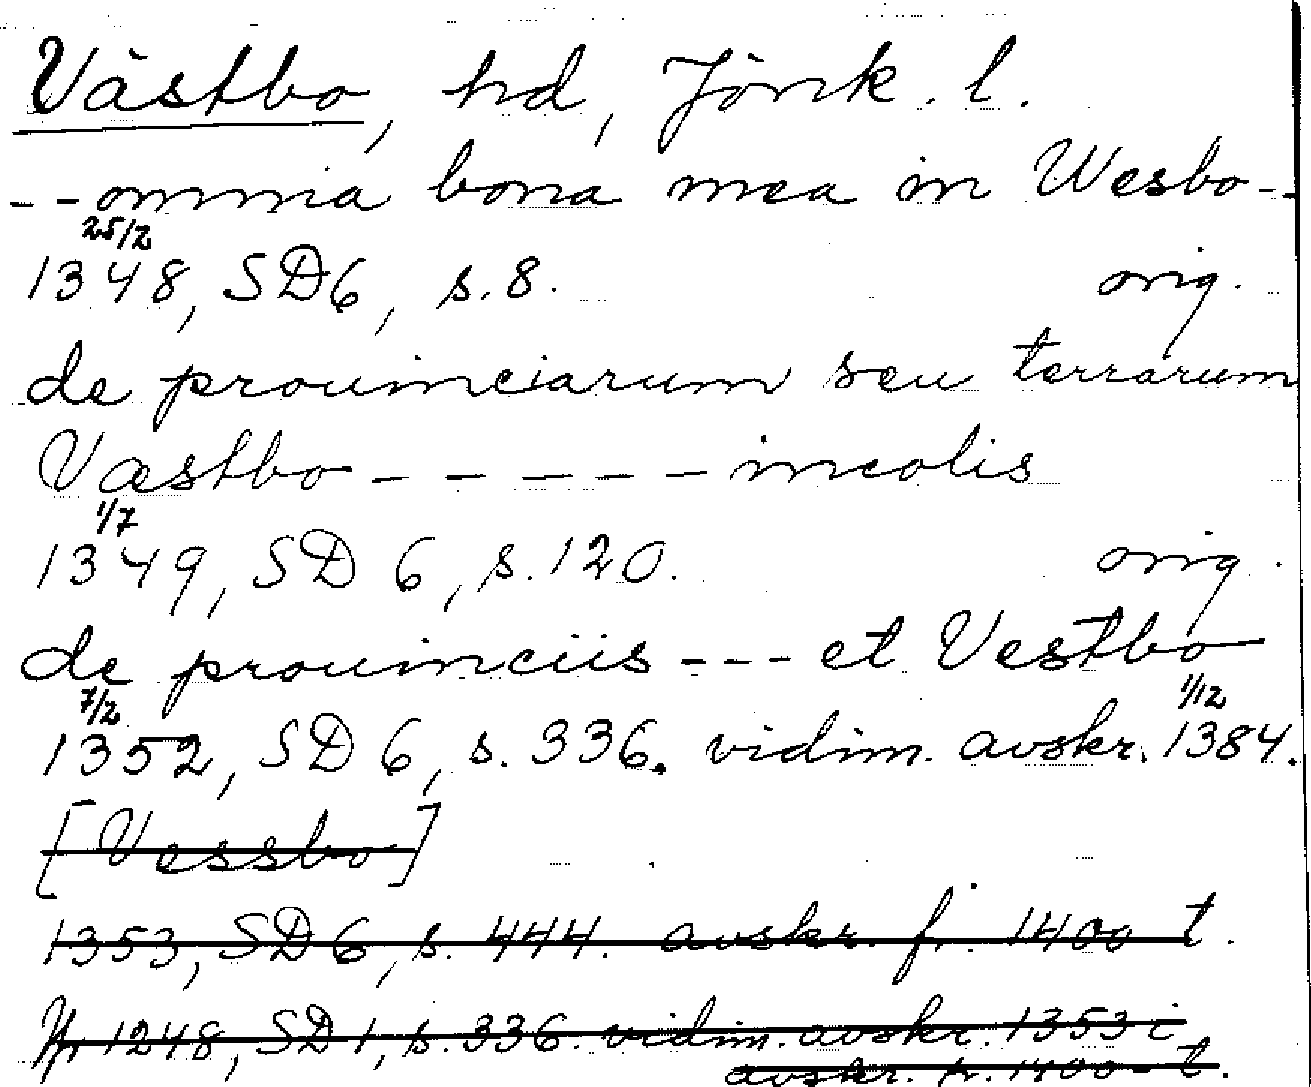 Västbo, hd, Jönk. l.
--omnia bona mea in Wesbo--
25/2
1348, SD6, s.8. orig.
de prouinciarum seu terrarum
Væstbo - - - - - incolis
1/7
1349, SD 6, s.120. orig.
de prouinciis --- et Vestbo
7/2 1/12
1352, SD 6, s. 336. vidim. avskr. 1384.
[Vessbo]
1353, SD 6, s. 444. avskr. fr. 1400 t.
1248, SD 1, s. 336. vidim. avskr. 1353 i
avskr. fr. 1400-t.